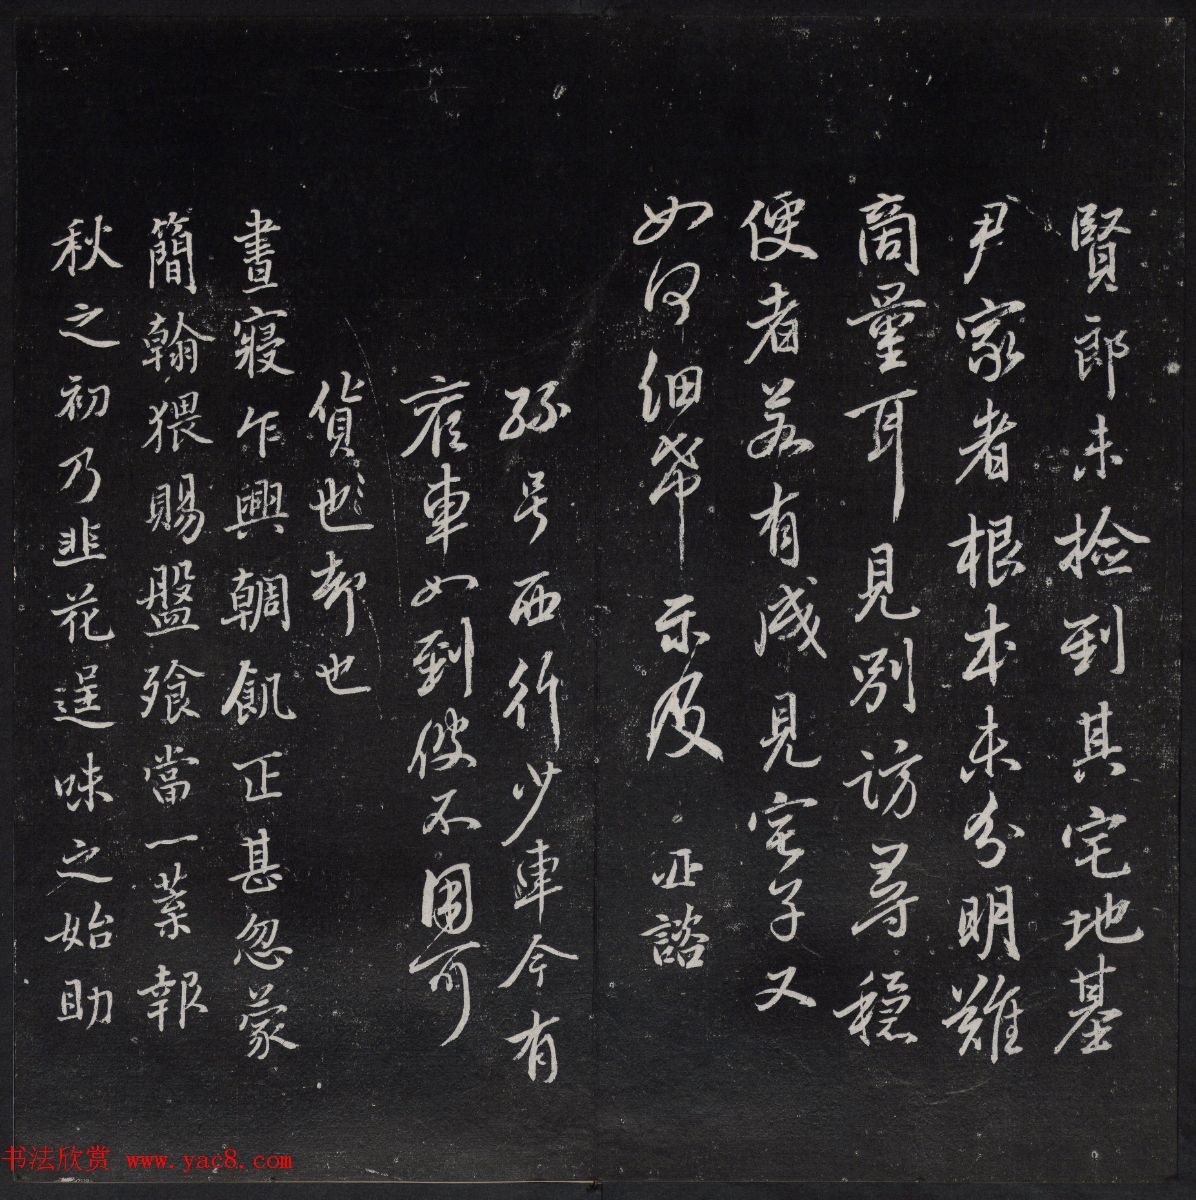 賢郎未撿到其宅地基
尹家者根本未分明難
商量耳見別訪尋穩
便者若有成見宅子又
如何細希示及 諮
号西行少車今有
車如到彼不用可
貨也却也
晝寢乍興輖飢正甚忽蒙
簡翰猥賜盤飱當一葉報
秋之初乃韭花逞味之始助
书法欣赏 www.yac8.com